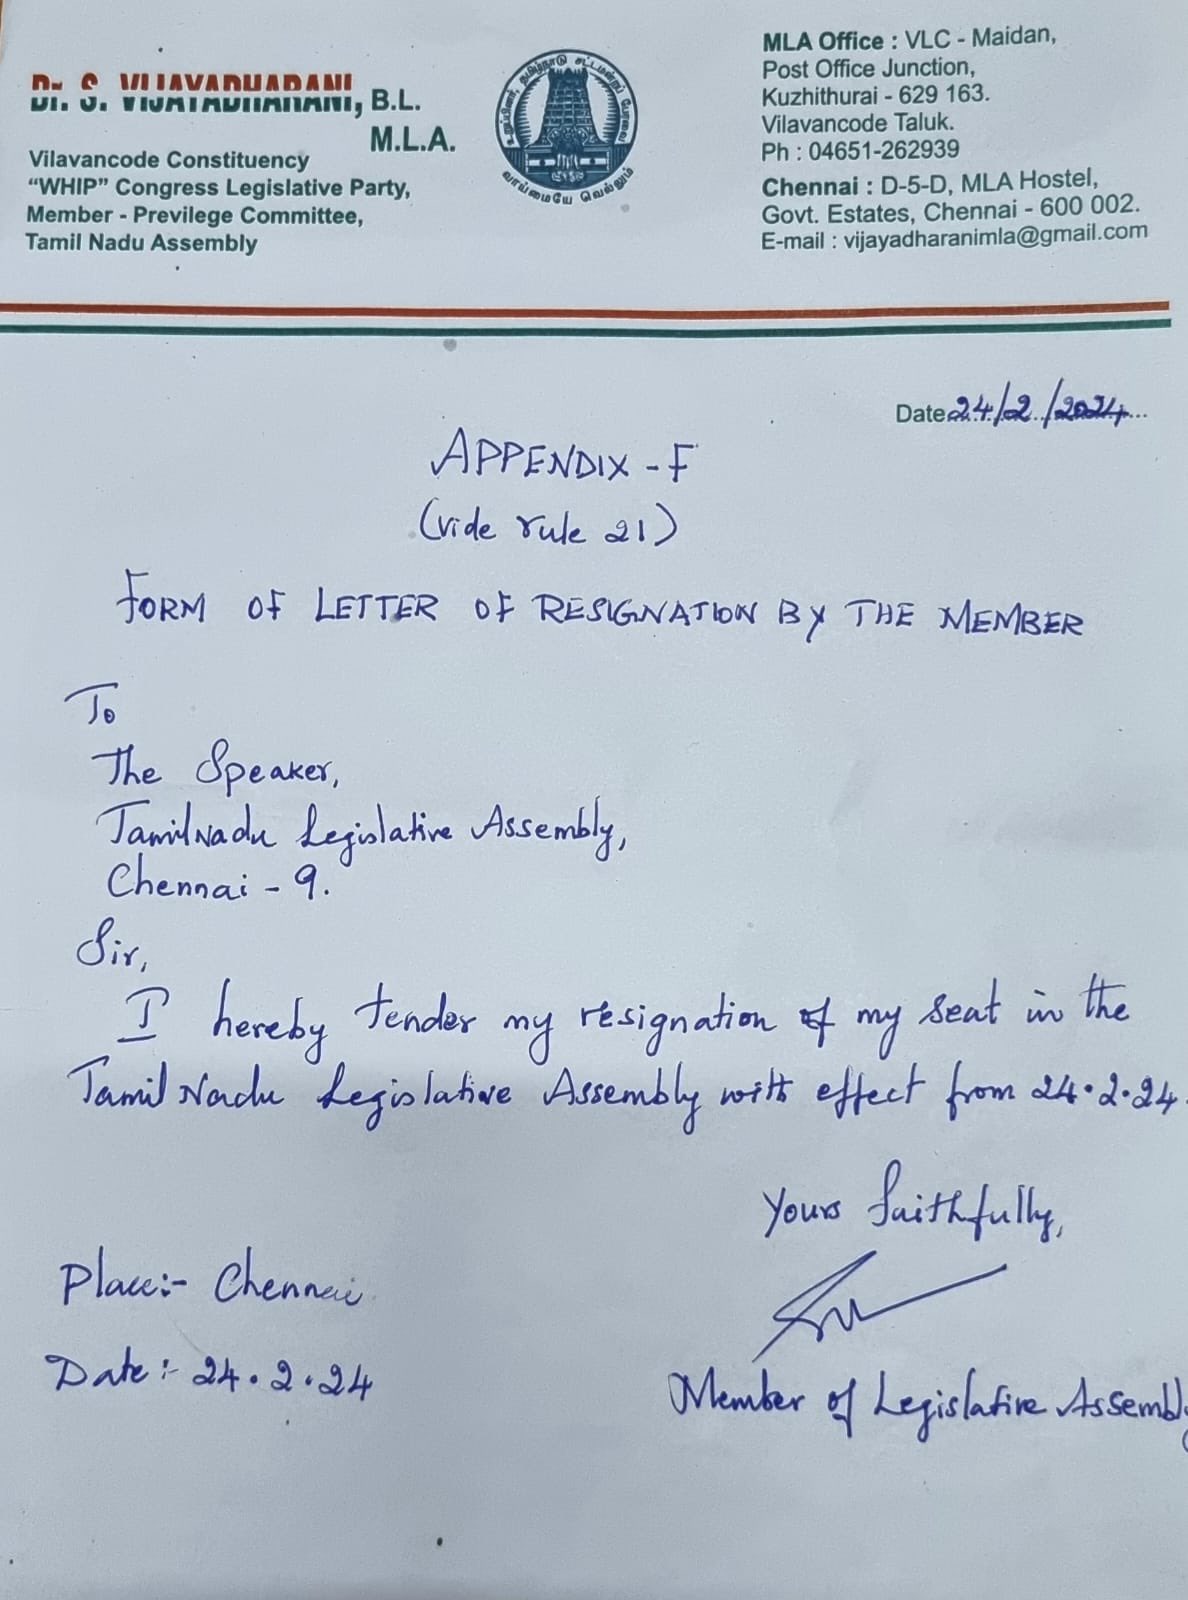 Dr. S. VIJAYADHARANI, B.L.
M.L.A.
Vilavancode Constituency
“WHIP” Congress Legislative Party,
Member - Previlege Committee,
Tamil Nadu Assembly
தமிழ்நாடு சட்டமன்றப் பேரவை
உறுப்பினர்,
வாய்மையே வெல்லும்
MLA Office : VLC - Maidan,
Post Office Junction,
Kuzhithurai - 629 163.
Vilavancode Taluk.
Ph : 04651-262939
Chennai : D-5-D, MLA Hostel,
Govt. Estates, Chennai - 600 002.
E-mail : vijayadharanimla@gmail.com
Date 24/2/2024
APPENDIX - F
(vide rule 21)
FORM OF LETTER OF RESIGNATION BY THE MEMBER
To
The Speaker,
TamilNadu Legislative Assembly,
Chennai - 9.
Sir,
I hereby tender my resignation of my seat in the
Tamil Nadu Legislative Assembly with effect from 24.2.24.
Yours faithfully,
Place:- Chennai
Date:- 24.2.24
Member of Legislative Assembly